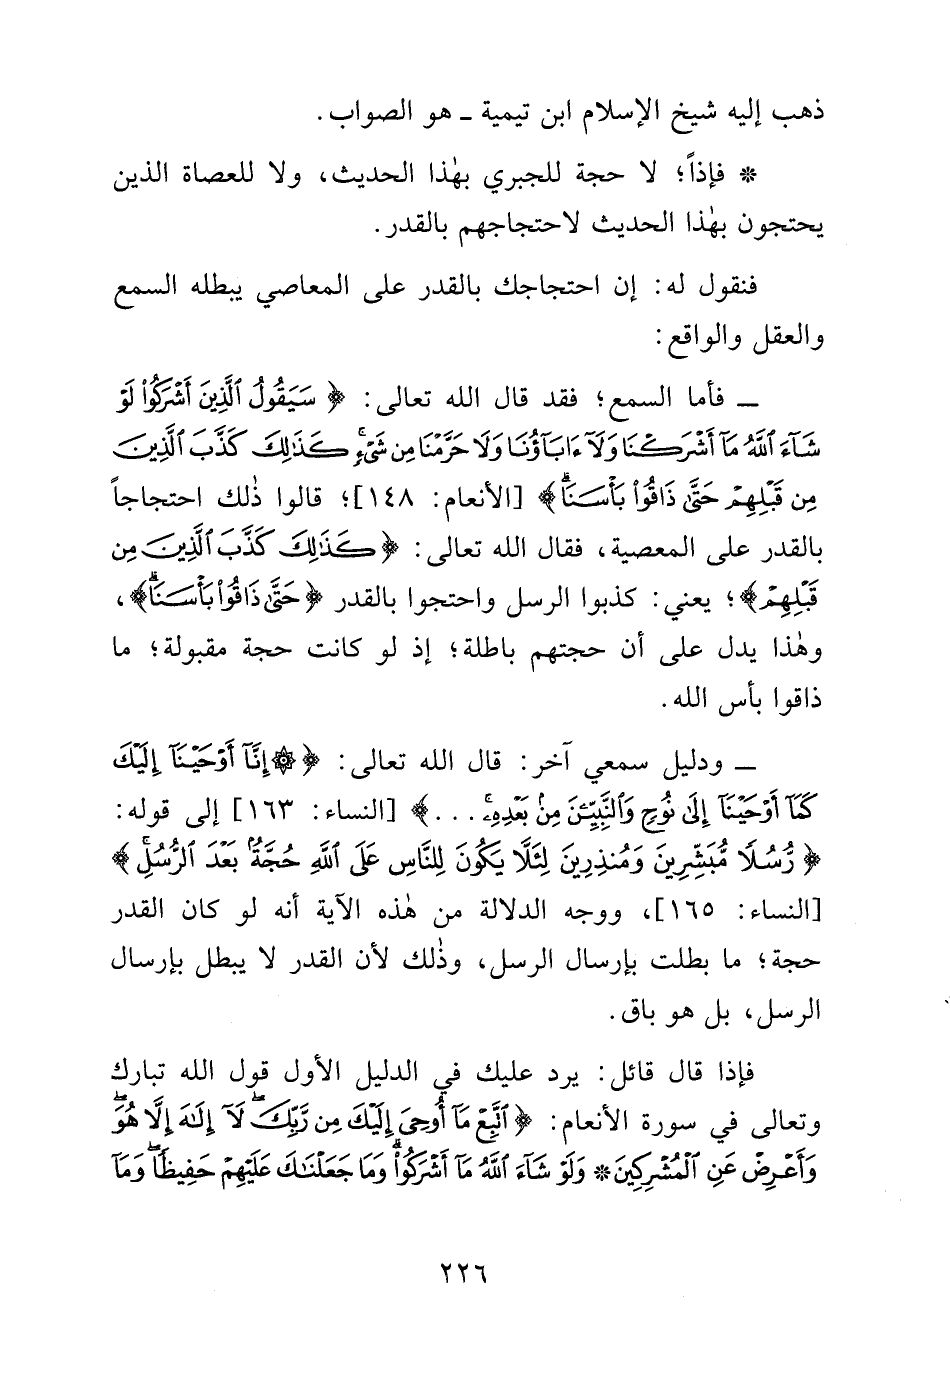 ذهب إليه شيخ الإسلام ابن تيمية ـ هو الصواب.
* فإذاً؛ لا حجة للجبري بهٰذا الحديث، ولا للعصاة الذين
يحتجون بهٰذا الحديث لاحتجاجهم بالقدر.
فنقول له: إن احتجاجك بالقدر على المعاصي يبطله السمع
والعقل والواقع:
ـ فأما السمع؛ فقد قال الله تعالى: ﴿سَيَقُولُ ٱلَّذِينَ أَشْرَكُوا۟ لَوْ
شَآءَ ٱللَّهُ مَآ أَشْرَكْنَا وَلَآ ءَابَآؤُنَا وَلَا حَرَّمْنَا مِن شَىْءٍۚ كَذَٰلِكَ كَذَّبَ ٱلَّذِينَ
مِن قَبْلِهِمْ حَتَّىٰ ذَاقُوا۟ بَأْسَنَاۗ﴾ [الأنعام: ١٤٨]؛ قالوا ذٰلك احتجاجاً
بالقدر على المعصية، فقال الله تعالى: ﴿كَذَٰلِكَ كَذَّبَ ٱلَّذِينَ مِن
قَبْلِهِمْ﴾؛ يعني: كذبوا الرسل واحتجوا بالقدر ﴿حَتَّىٰ ذَاقُوا۟ بَأْسَنَاۗ﴾،
وهٰذا يدل على أن حجتهم باطلة؛ إذ لو كانت حجة مقبولة؛ ما
ذاقوا بأس الله.
ـ ودليل سمعي آخر: قال الله تعالى: ﴿۞إِنَّآ أَوْحَيْنَآ إِلَيْكَ
كَمَآ أَوْحَيْنَآ إِلَىٰ نُوحٍ وَٱلنَّبِيِّـۧنَ مِنۢ بَعْدِهِۦۚ . . .﴾ [النساء: ١٦٣] إلى قوله:
﴿رُّسُلًا مُّبَشِّرِينَ وَمُنذِرِينَ لِئَلَّا يَكُونَ لِلنَّاسِ عَلَى ٱللَّهِ حُجَّةٌۢ بَعْدَ ٱلرُّسُلِۚ﴾
[النساء: ١٦٥]، ووجه الدلالة من هٰذه الآية أنه لو كان القدر
حجة؛ ما بطلت بإرسال الرسل، وذٰلك لأن القدر لا يبطل بإرسال
الرسل، بل هو باق.
فإذا قال قائل: يرد عليك في الدليل الأول قول الله تبارك
وتعالى في سورة الأنعام: ﴿ٱتَّبِعْ مَآ أُوحِىَ إِلَيْكَ مِن رَّبِّكَۖ لَآ إِلَٰهَ إِلَّا هُوَۖ
وَأَعْرِضْ عَنِ ٱلْمُشْرِكِينَ* وَلَوْ شَآءَ ٱللَّهُ مَآ أَشْرَكُوا۟ۗ وَمَا جَعَلْنَٰكَ عَلَيْهِمْ حَفِيظًاۖ وَمَآ
٢٢٦